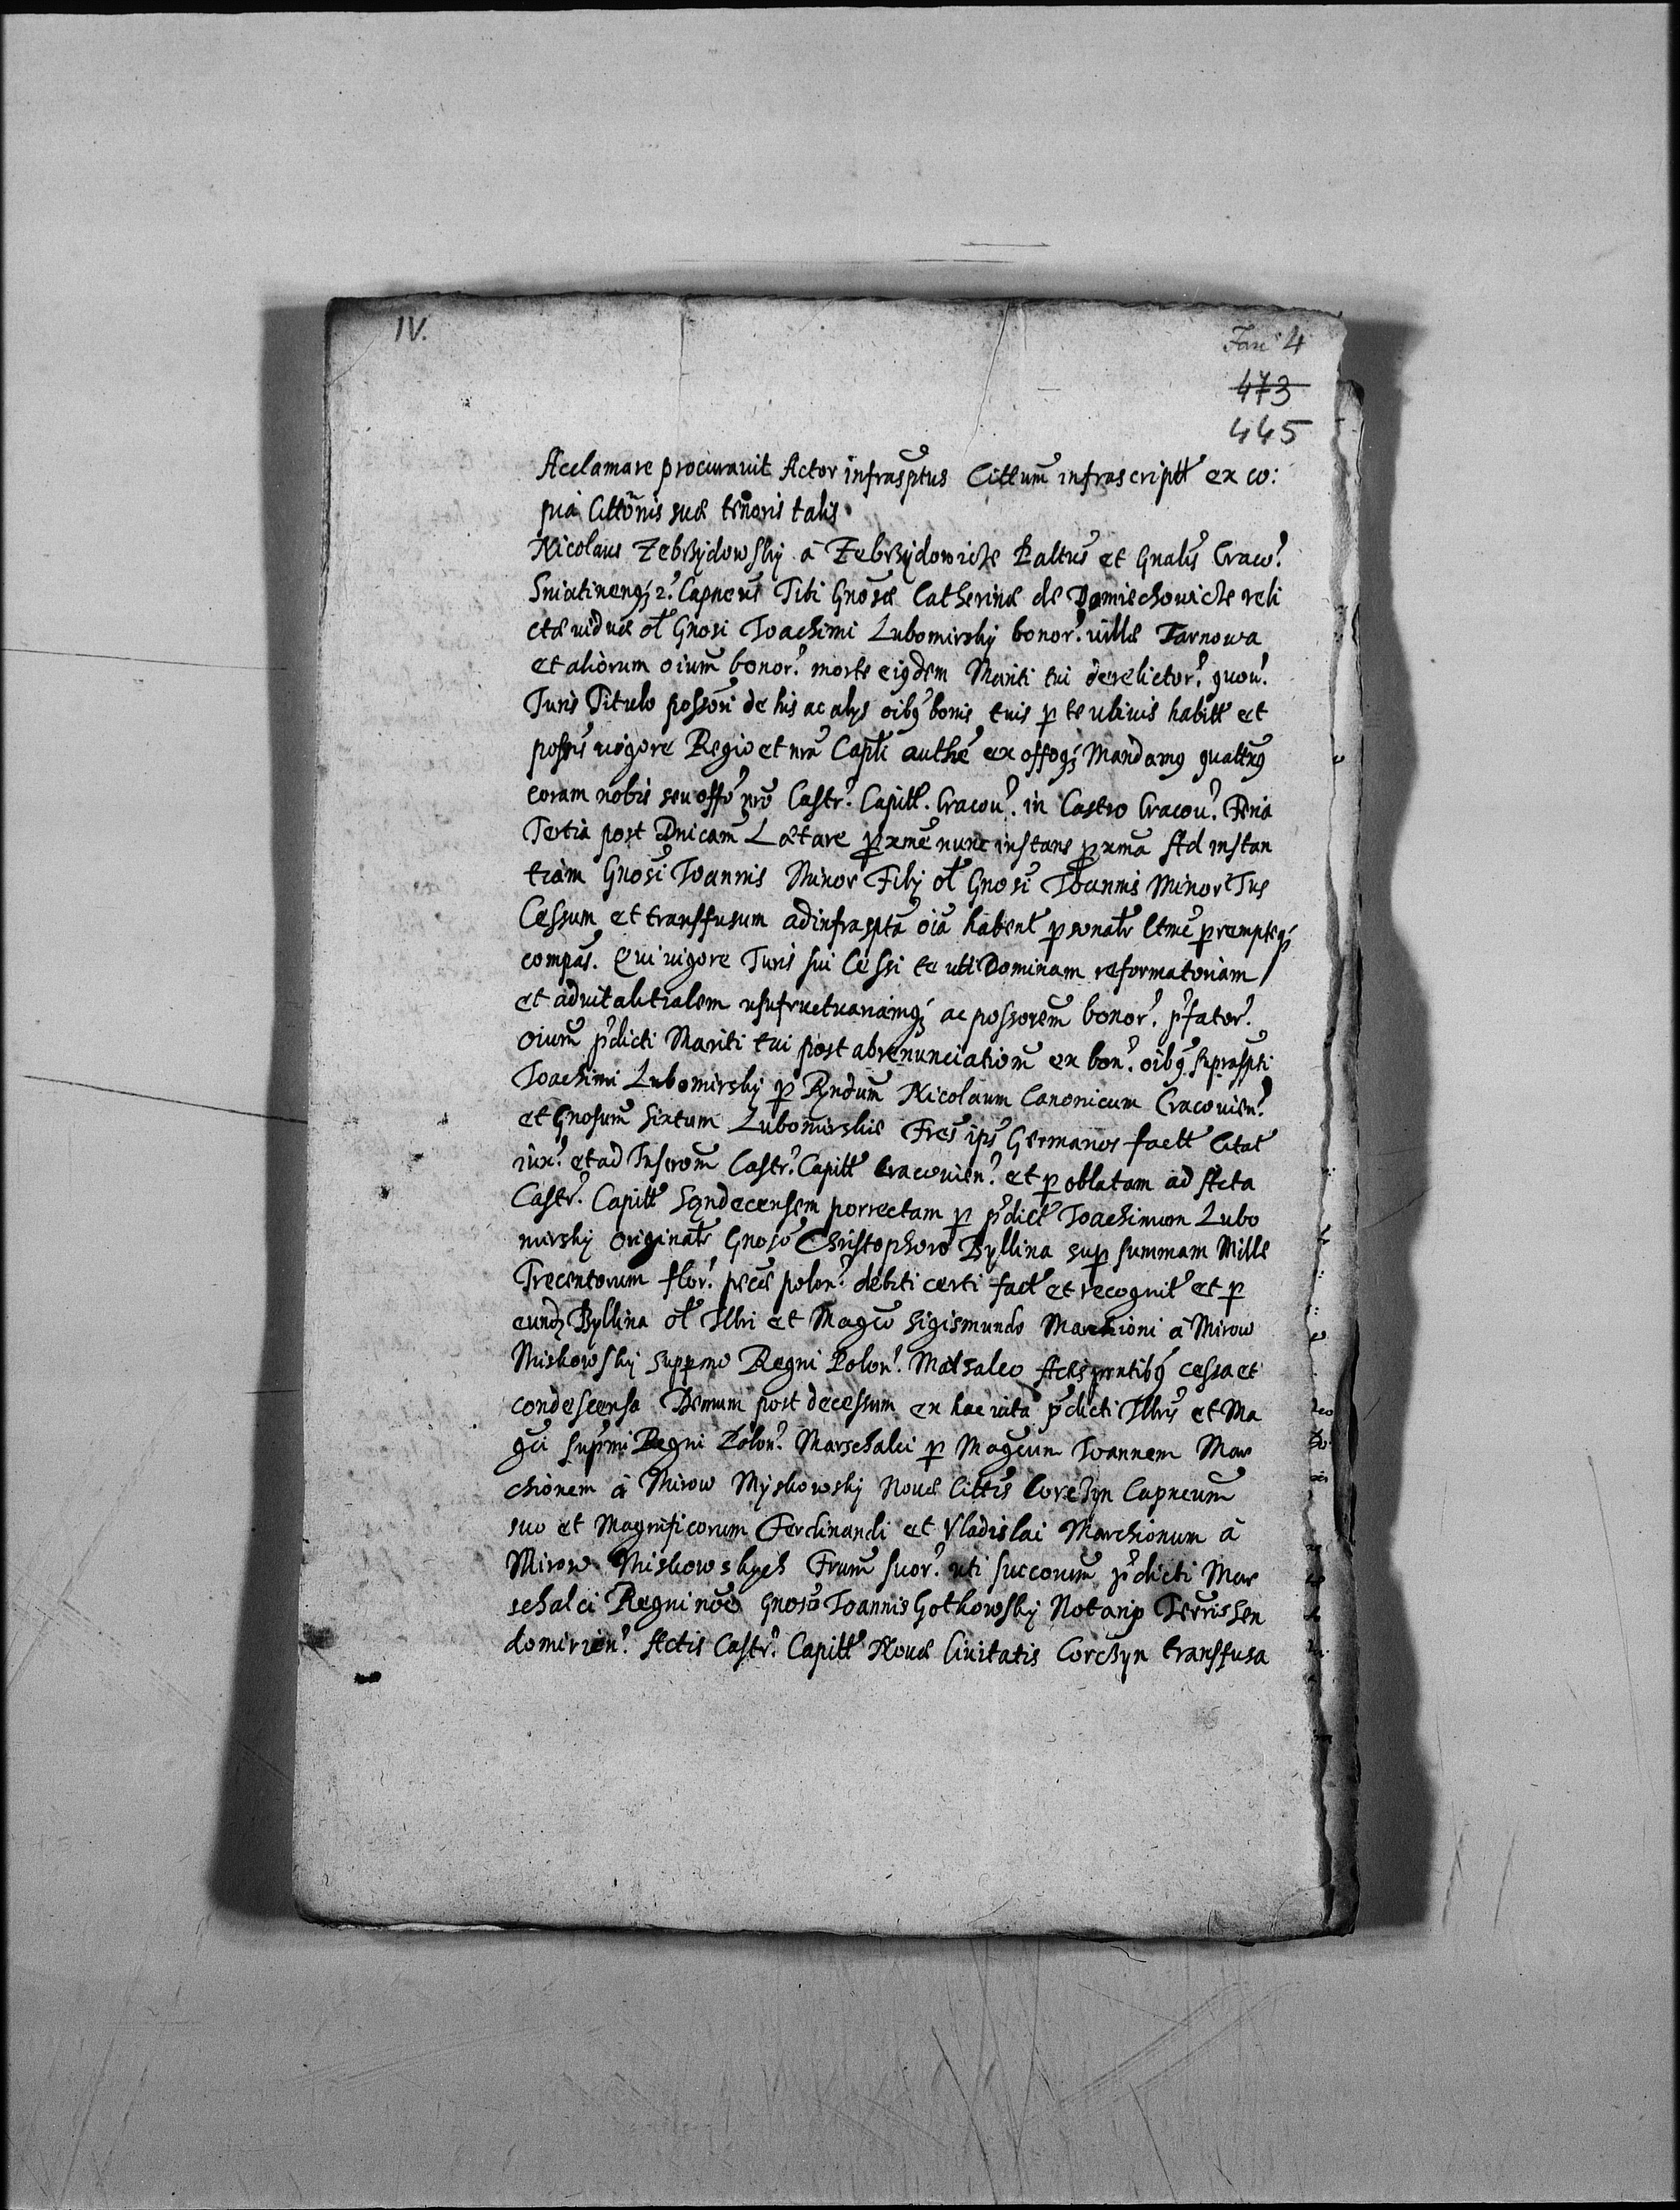 IV.
Fasc 4
473
445
Acclamare procuravit Actor infrasptus Cittum infrascriptt ex co:
pia Cittonis suæ tenoris talis.
Nicolaus Zebrzÿdowskÿ à Zebrzÿdowicze Paltus et Gnalis Craw.
Sniatinensq; Capneus Tibi Gnosæ Catherinæ de Domiechowicze reli
ctæ viduæ ol Gnosi Joachimi Lubomirskÿ bonor. villæ Tarnowa
et aliorum oium bonor. morte eiqdem Mariti tui derelictor. quou.
Juris Titulo possori de his ac alÿs oibq bonis tuis p te ubiuis habitt et
possis vigore Regio et nra Captli authe ex offoq; Mandamq quattnq
coram nobis seu offo nro Castr. Capitt. Cracou. in Castro Cracou. Feria
Tertia post Dnicam Lætare pxme nunc instans pxma Ad instan
tiam Gnosi Joannis Minor Filÿ ol Gnosi Joannis Minor Jus
Cessum et transfusum ad infraspta oia habent psonatr ltme premptq;
compas. Qui vigore Juris sui Cessi te uti Dominam reformatoriam
et advitalitialem usufructuariamq; ac possorem bonor. pfator.
oium pdicti Mariti tui post abrenunciationm ex bon. oibq suprassti
Joachimi Lubomirskÿ p Rndum Nicolaum Canonicum Cracovien.
et Gnosum Sixtum Lubomirskie Fres ips Germanos factt Citat
iux. et ad Inscrom Castr. Capitt Cracovien. et p oblatam ad Acta
Castr. Capitt Sandecensem porrectam p pdict Joachimum Lubo
mirskÿ originatr Gnoso Christophoro Bÿllina sup summam Mille
Trecentorum flor. pecæ polon. debiti certi fact et recognit et p
eund Bÿllina ol Illri et Magco Sigismundo Marchioni à Mirow
Miskowskÿ suppmo Regni Polon. Marsalco Actis pntibq cessa et
condescensa Demum post decessum ex hac vita pdicti Illris et Ma
gci supmi Regni Polon. Marschalci p Magcum Joannem Mar
chionem à Mirow Mÿskowskÿ Novæ Cittis Corczÿn Capneum
suo et Magnificorum Ferdinandi et Vladislai Marchionum à
Mirow Miskowskÿch Frum suor. uti succorum pdicti Mar
schalci Regni noe Gnoso Joannis Gotkowskÿ Notario Terris Sen
domirien. Actis Castr. Capitt Novæ Civitatis Corczÿn transfusa